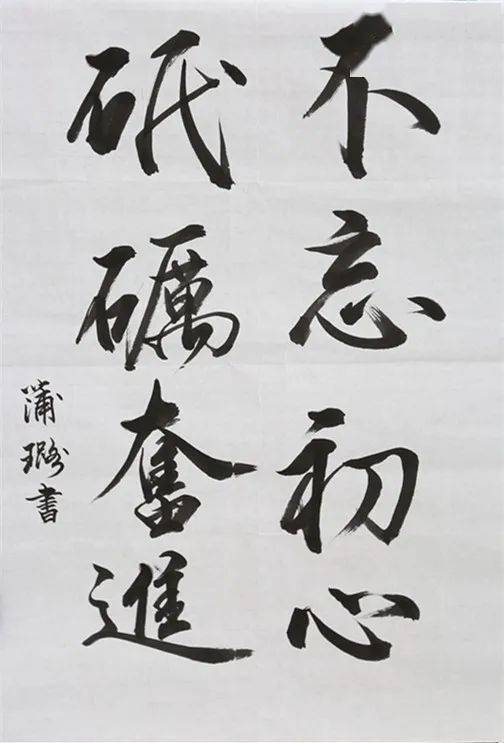 不忘初心
砥礪奮進
蒲璐書